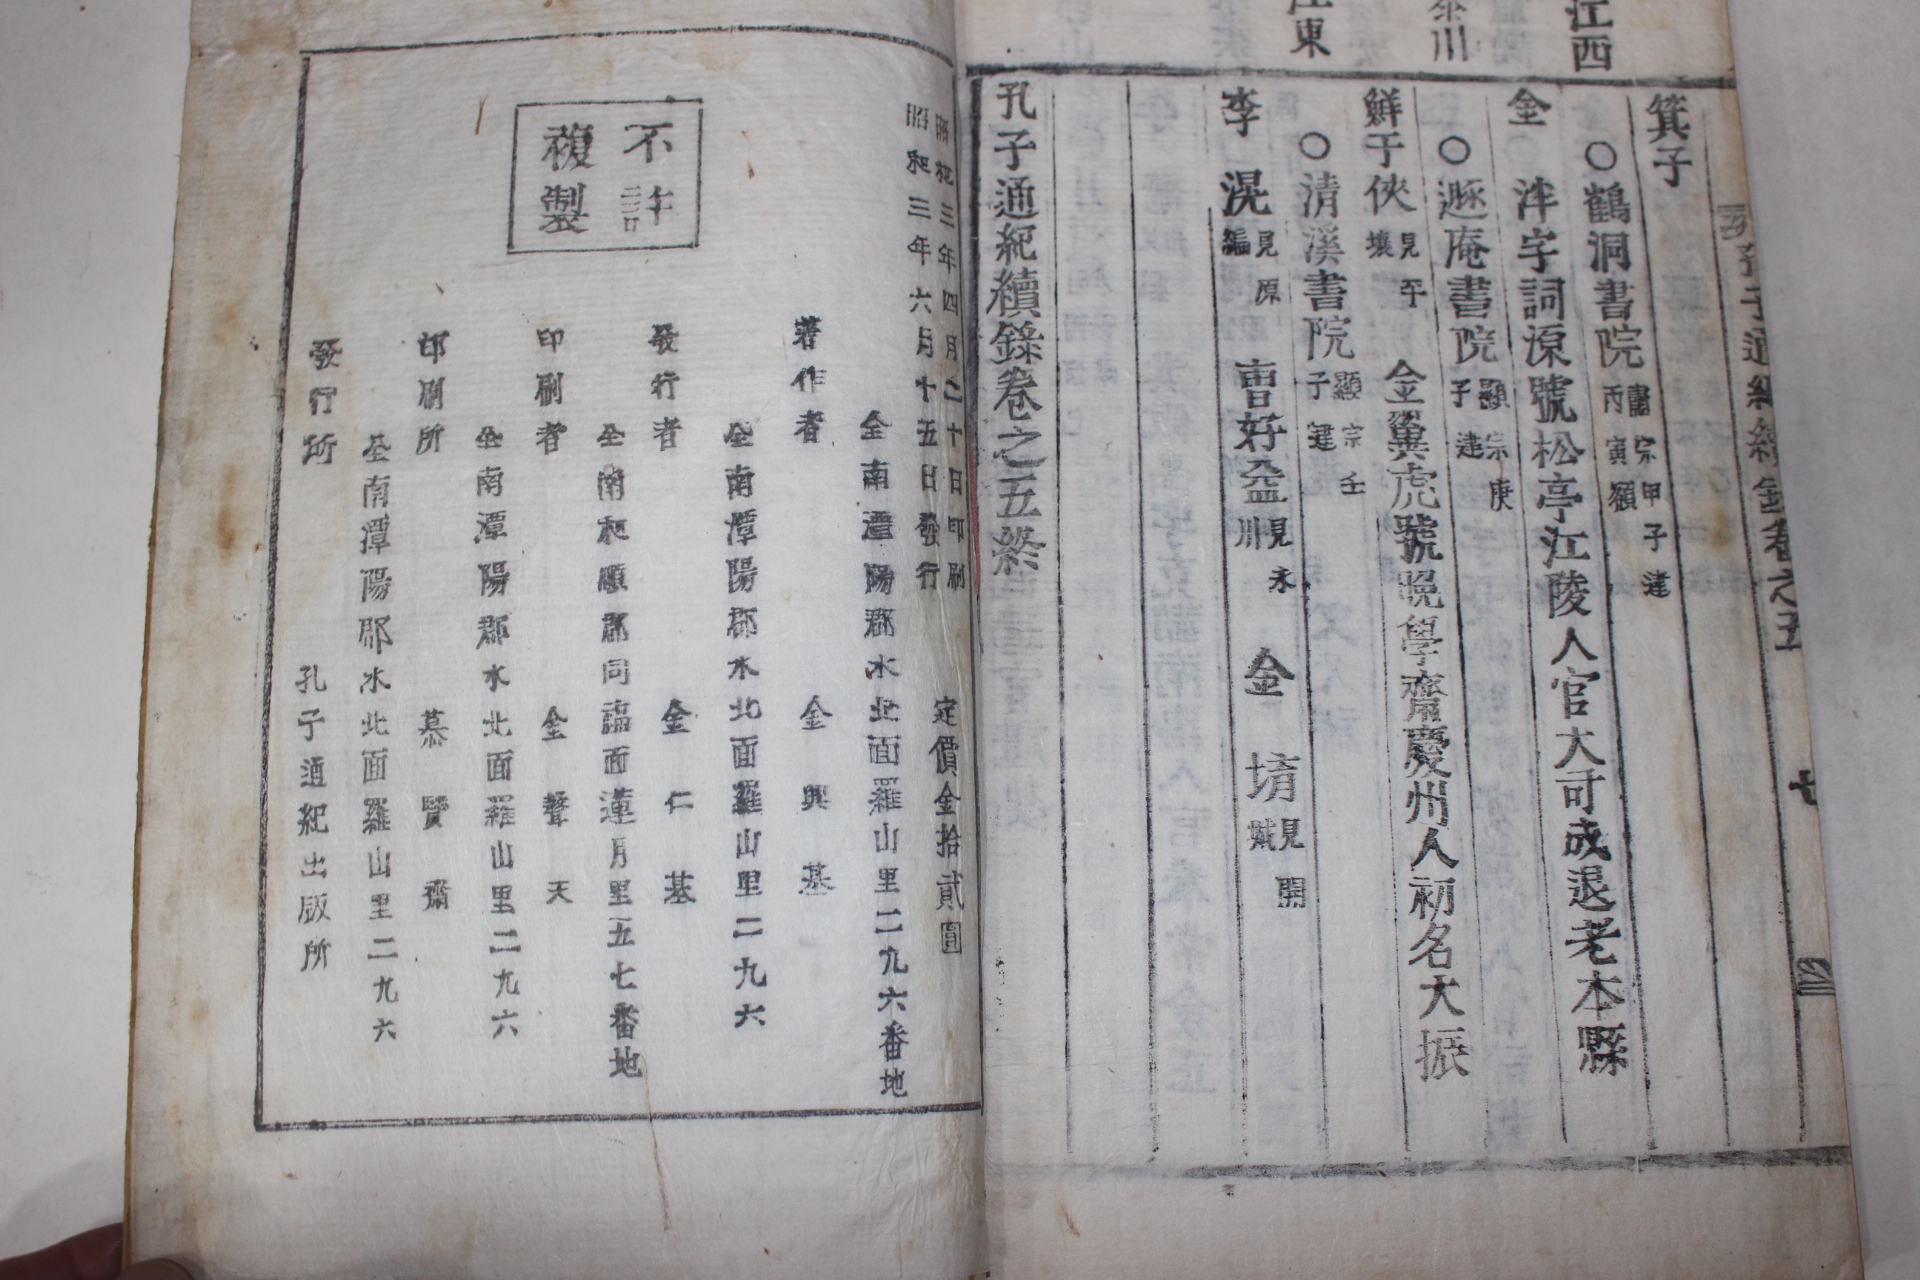 江西
泰川
江東
孔子通紀續錄卷之五
七
箕子
○鶴洞書院 肅宗甲子建 丙寅額
金泮字詞源號松亭江陵人官大司成退老本縣
○遯庵書院 顯宗庚子建
鮮于俠 見平壤 金翼虎號晩學齋慶州人初名大振
○清溪書院 顯宗壬子建
李滉 見原編 曺好益 見永川 金堉 見開城
孔子通紀續錄卷之五終
昭和三年四月二十日印刷
昭和三年六月十五日發行
定價金拾貳圓
不許
複製
全南潭陽郡水北面羅山里二九六番地
著作者 金興基
全南潭陽郡水北面羅山里二九六
發行者 金仁基
全南和順郡同福面蓮月里五七番地
印刷者 金聲天
全南潭陽郡水北面羅山里二九六
印刷所 慕賢齋
全南潭陽郡水北面羅山里二九六
發行所 孔子通紀出版所